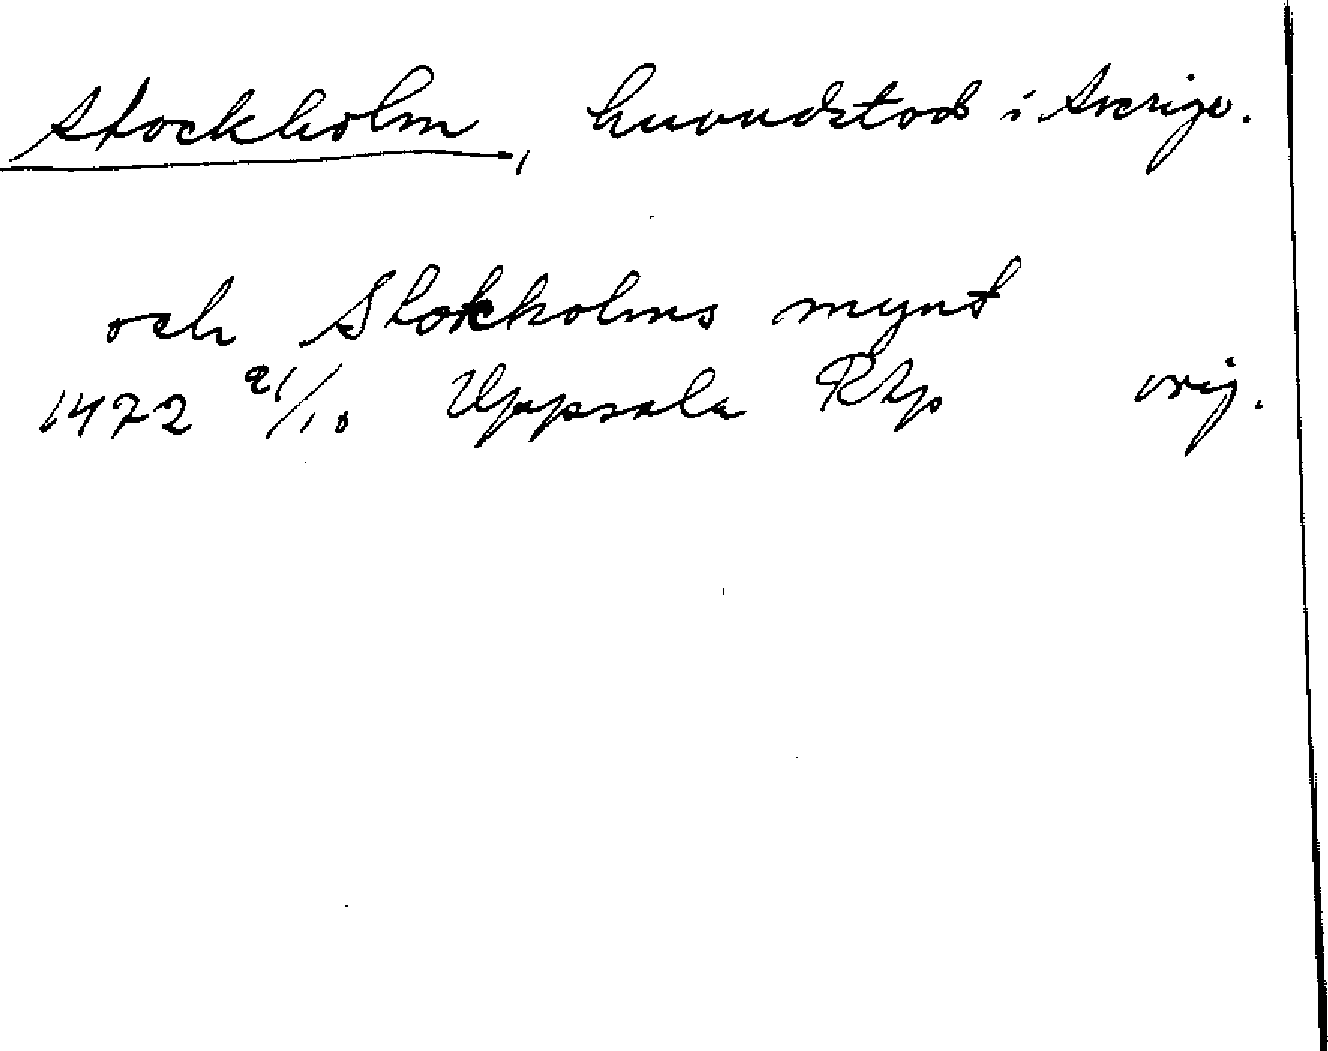 Stockholm, huvudstad i Sverige.
och Stokholms mynt
1472 21/10 Uppsala RAp orig.